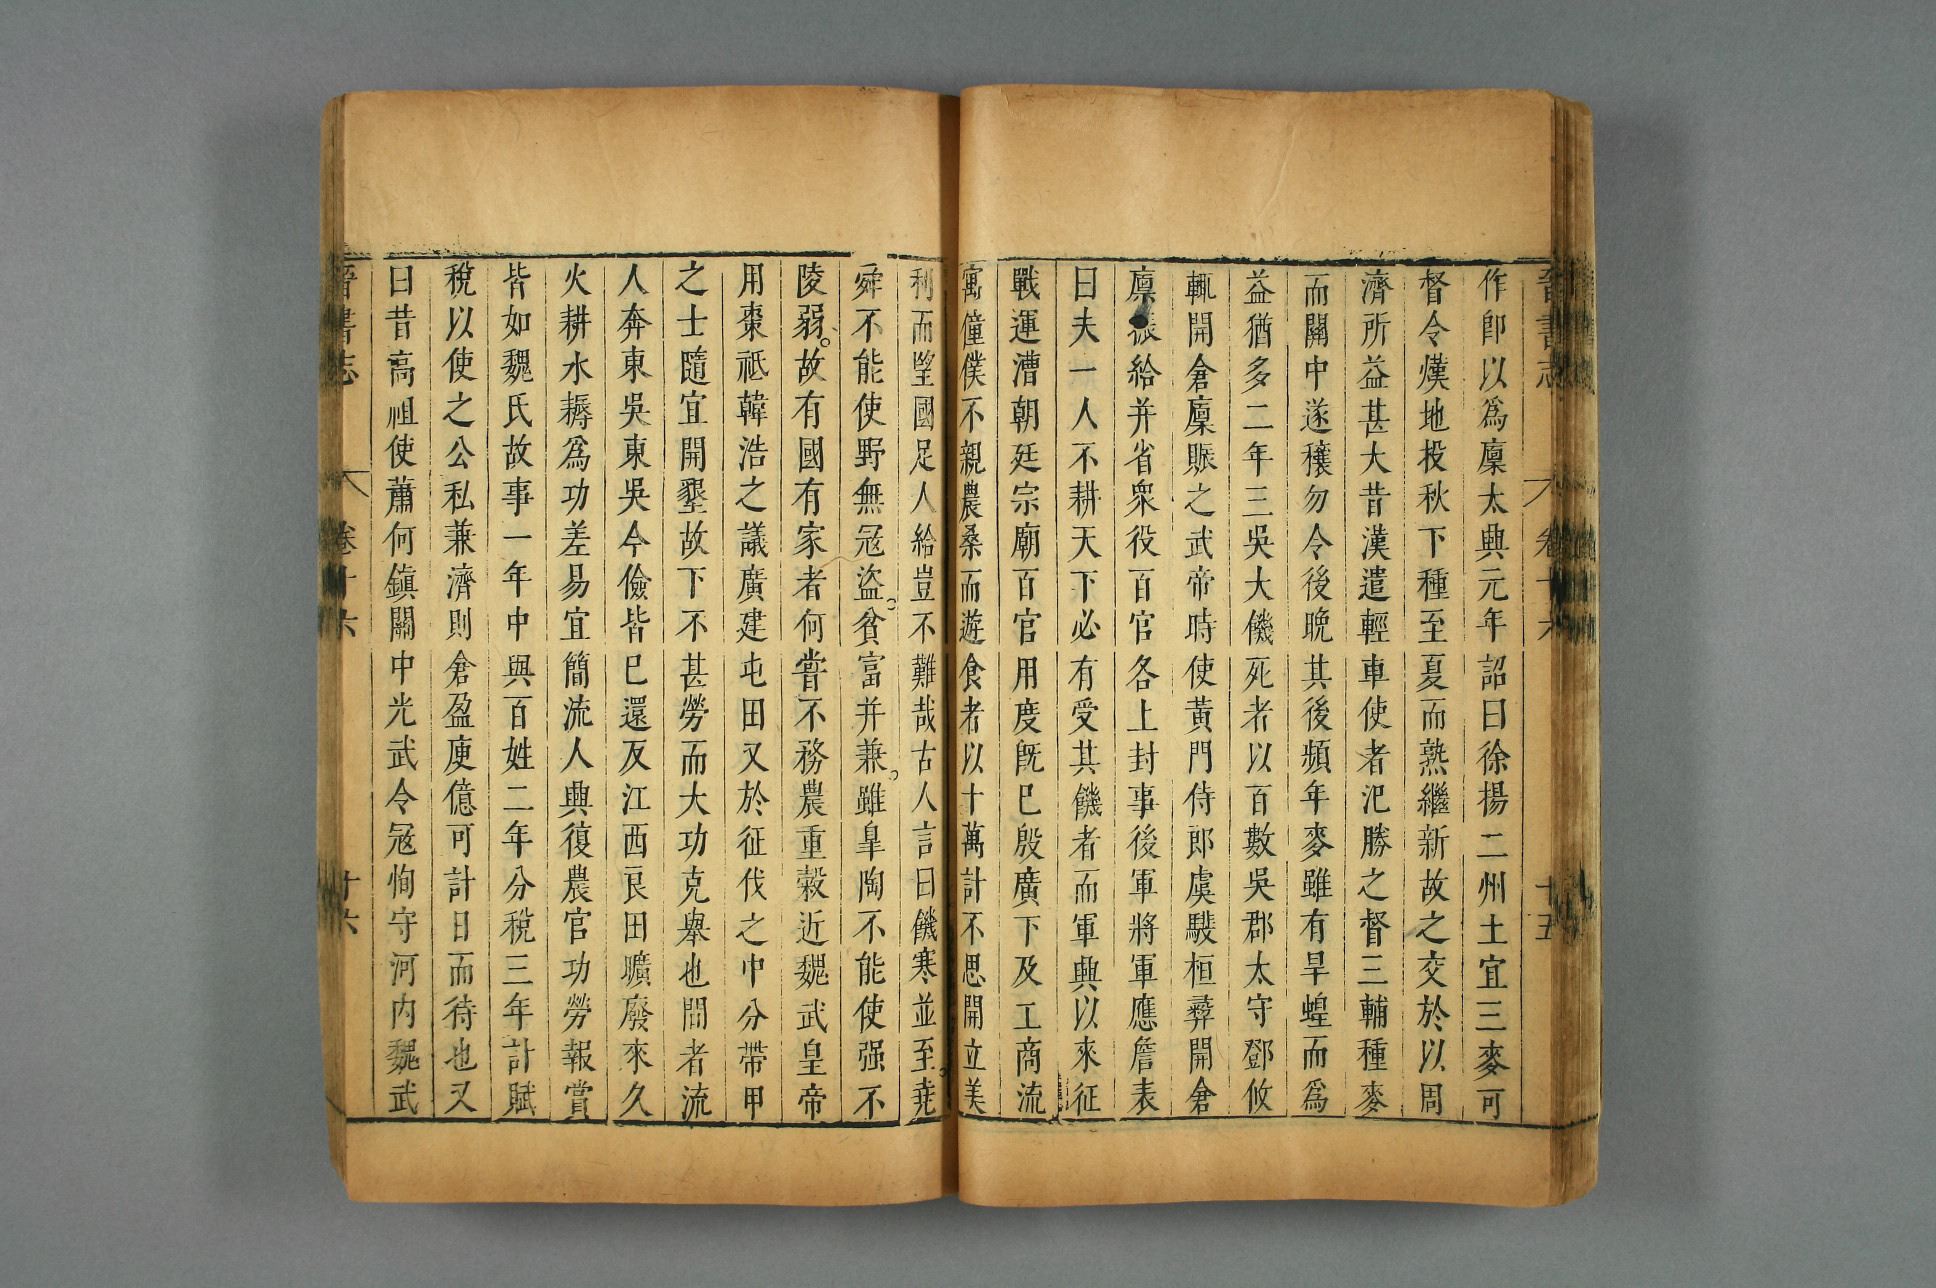 晉書志 卷十六 十五
作卽以爲廩太興元年詔曰徐揚二州土宜三麥可
督令熯地投秋下種至夏而熟繼新故之交於以周
濟所益甚大昔漢遣輕車使者氾勝之督三輔種麥
而關中遂穰勿令後晩其後頻年麥雖有旱蝗而爲
益猶多二年三吳大饑死者以百數吳郡太守鄧攸
輒開倉廩賑之武帝時使黃門侍郎虞𩦎桓彝開倉
廪振給并省衆役百官各上封事後軍將軍應詹表
曰夫一人不耕天下必有受其饑者而軍興以來征
戰運漕朝廷宗廟百官用度旣已殷廣下及工商流
寓僮僕不親農桑而遊食者以十萬計不思開立美
利而望國足人給豈不難哉古人言曰饑寒並至堯
舜不能使野無冦盜貧富并兼雖臯陶不能使强不
陵弱故有國有家者何嘗不務農重穀近魏武皇帝
用棗祗韓浩之議廣建屯田又於征伐之中分帶甲
之士隨宜開墾故下不甚勞而大功克舉也間者流
人奔東吳東吳今儉皆已還反江西良田曠廢來久
火耕水耨爲功差易宜簡流人興復農官功勞報賞
皆如魏氏故事一年中與百姓二年分稅三年計賦
稅以使之公私兼濟則倉盈庾億可計日而待也又
曰昔高祖使蕭何鎮關中光武令冦恂守河内魏武
晉書志 卷十六 十六